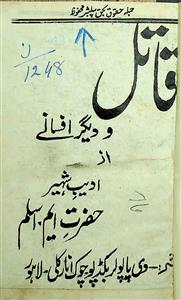 جملہ حقوق بحق پبلشر محفوظ
ن
1248
قاتل
و دیگر افسانے
از
ادیبِ شہیر
حضرت ایم۔ اسلم
دی پاپولر بکڈپو چوک انارکلی۔ لاہور